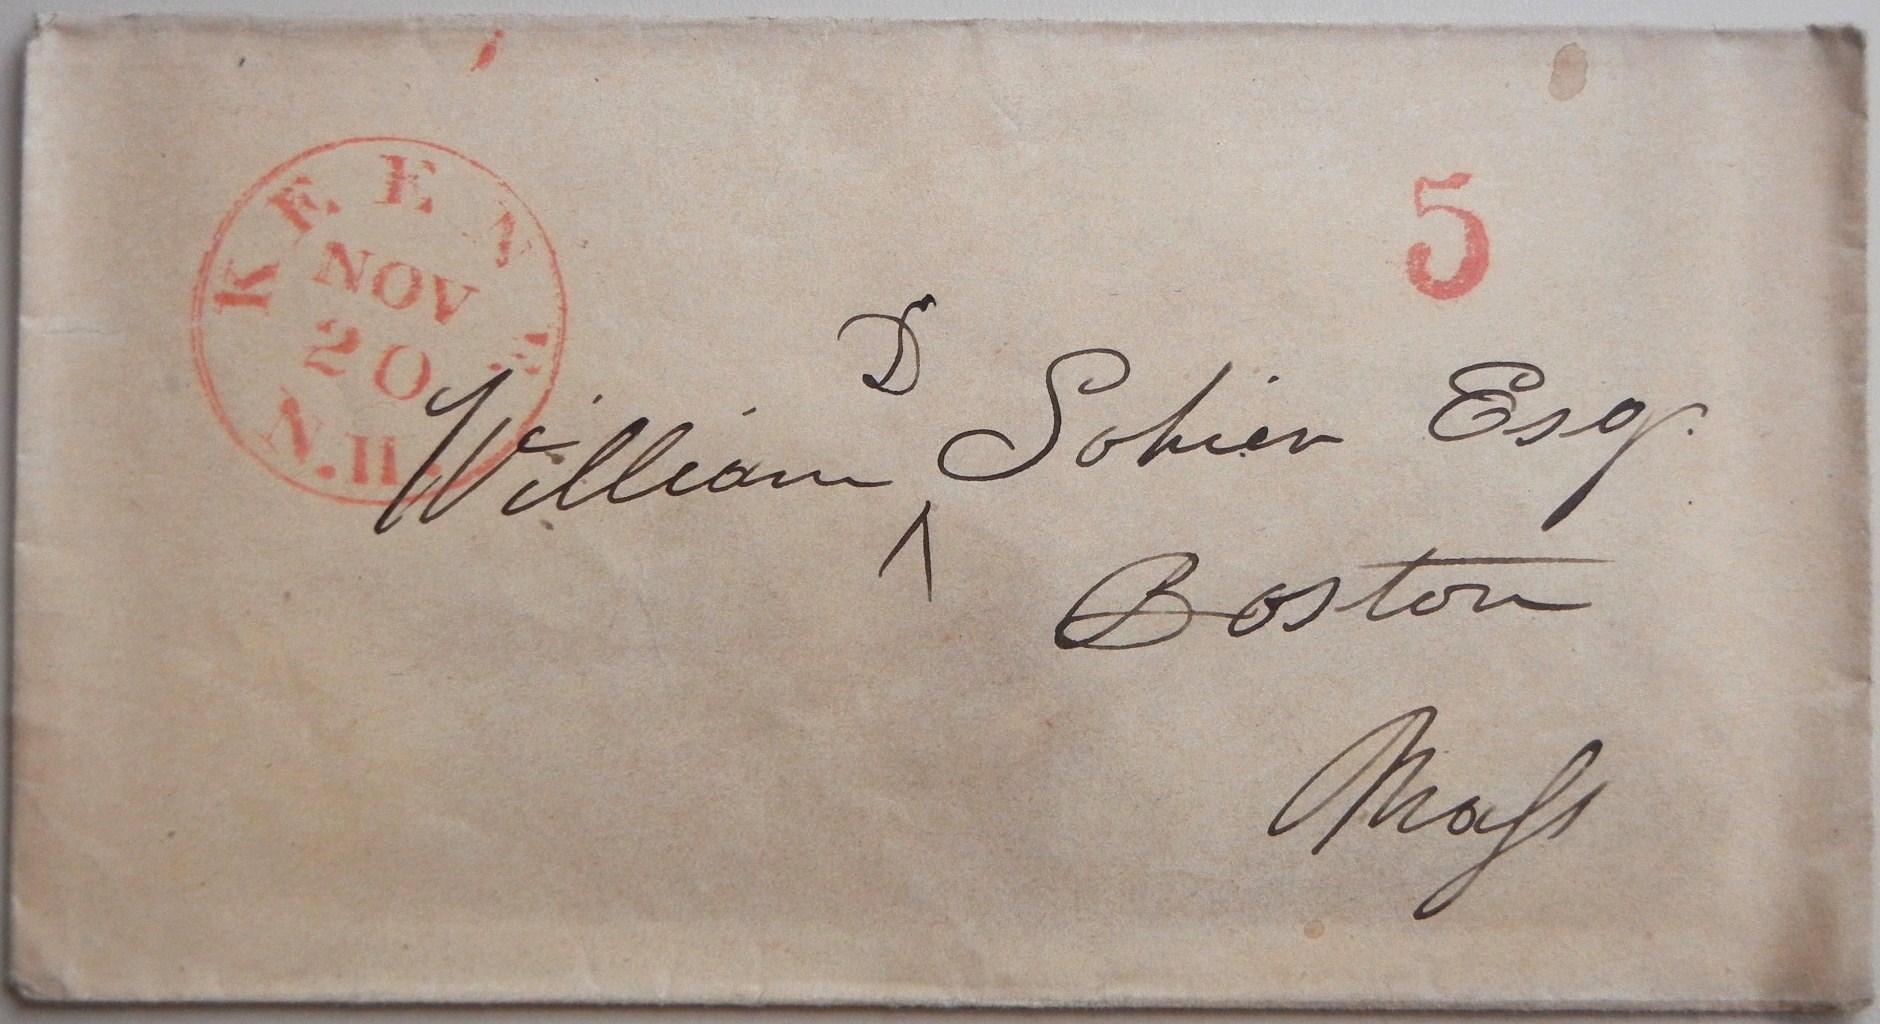 KEENE
NOV
20
N.H.
5
William D Sohier Esq.
Boston
Mass